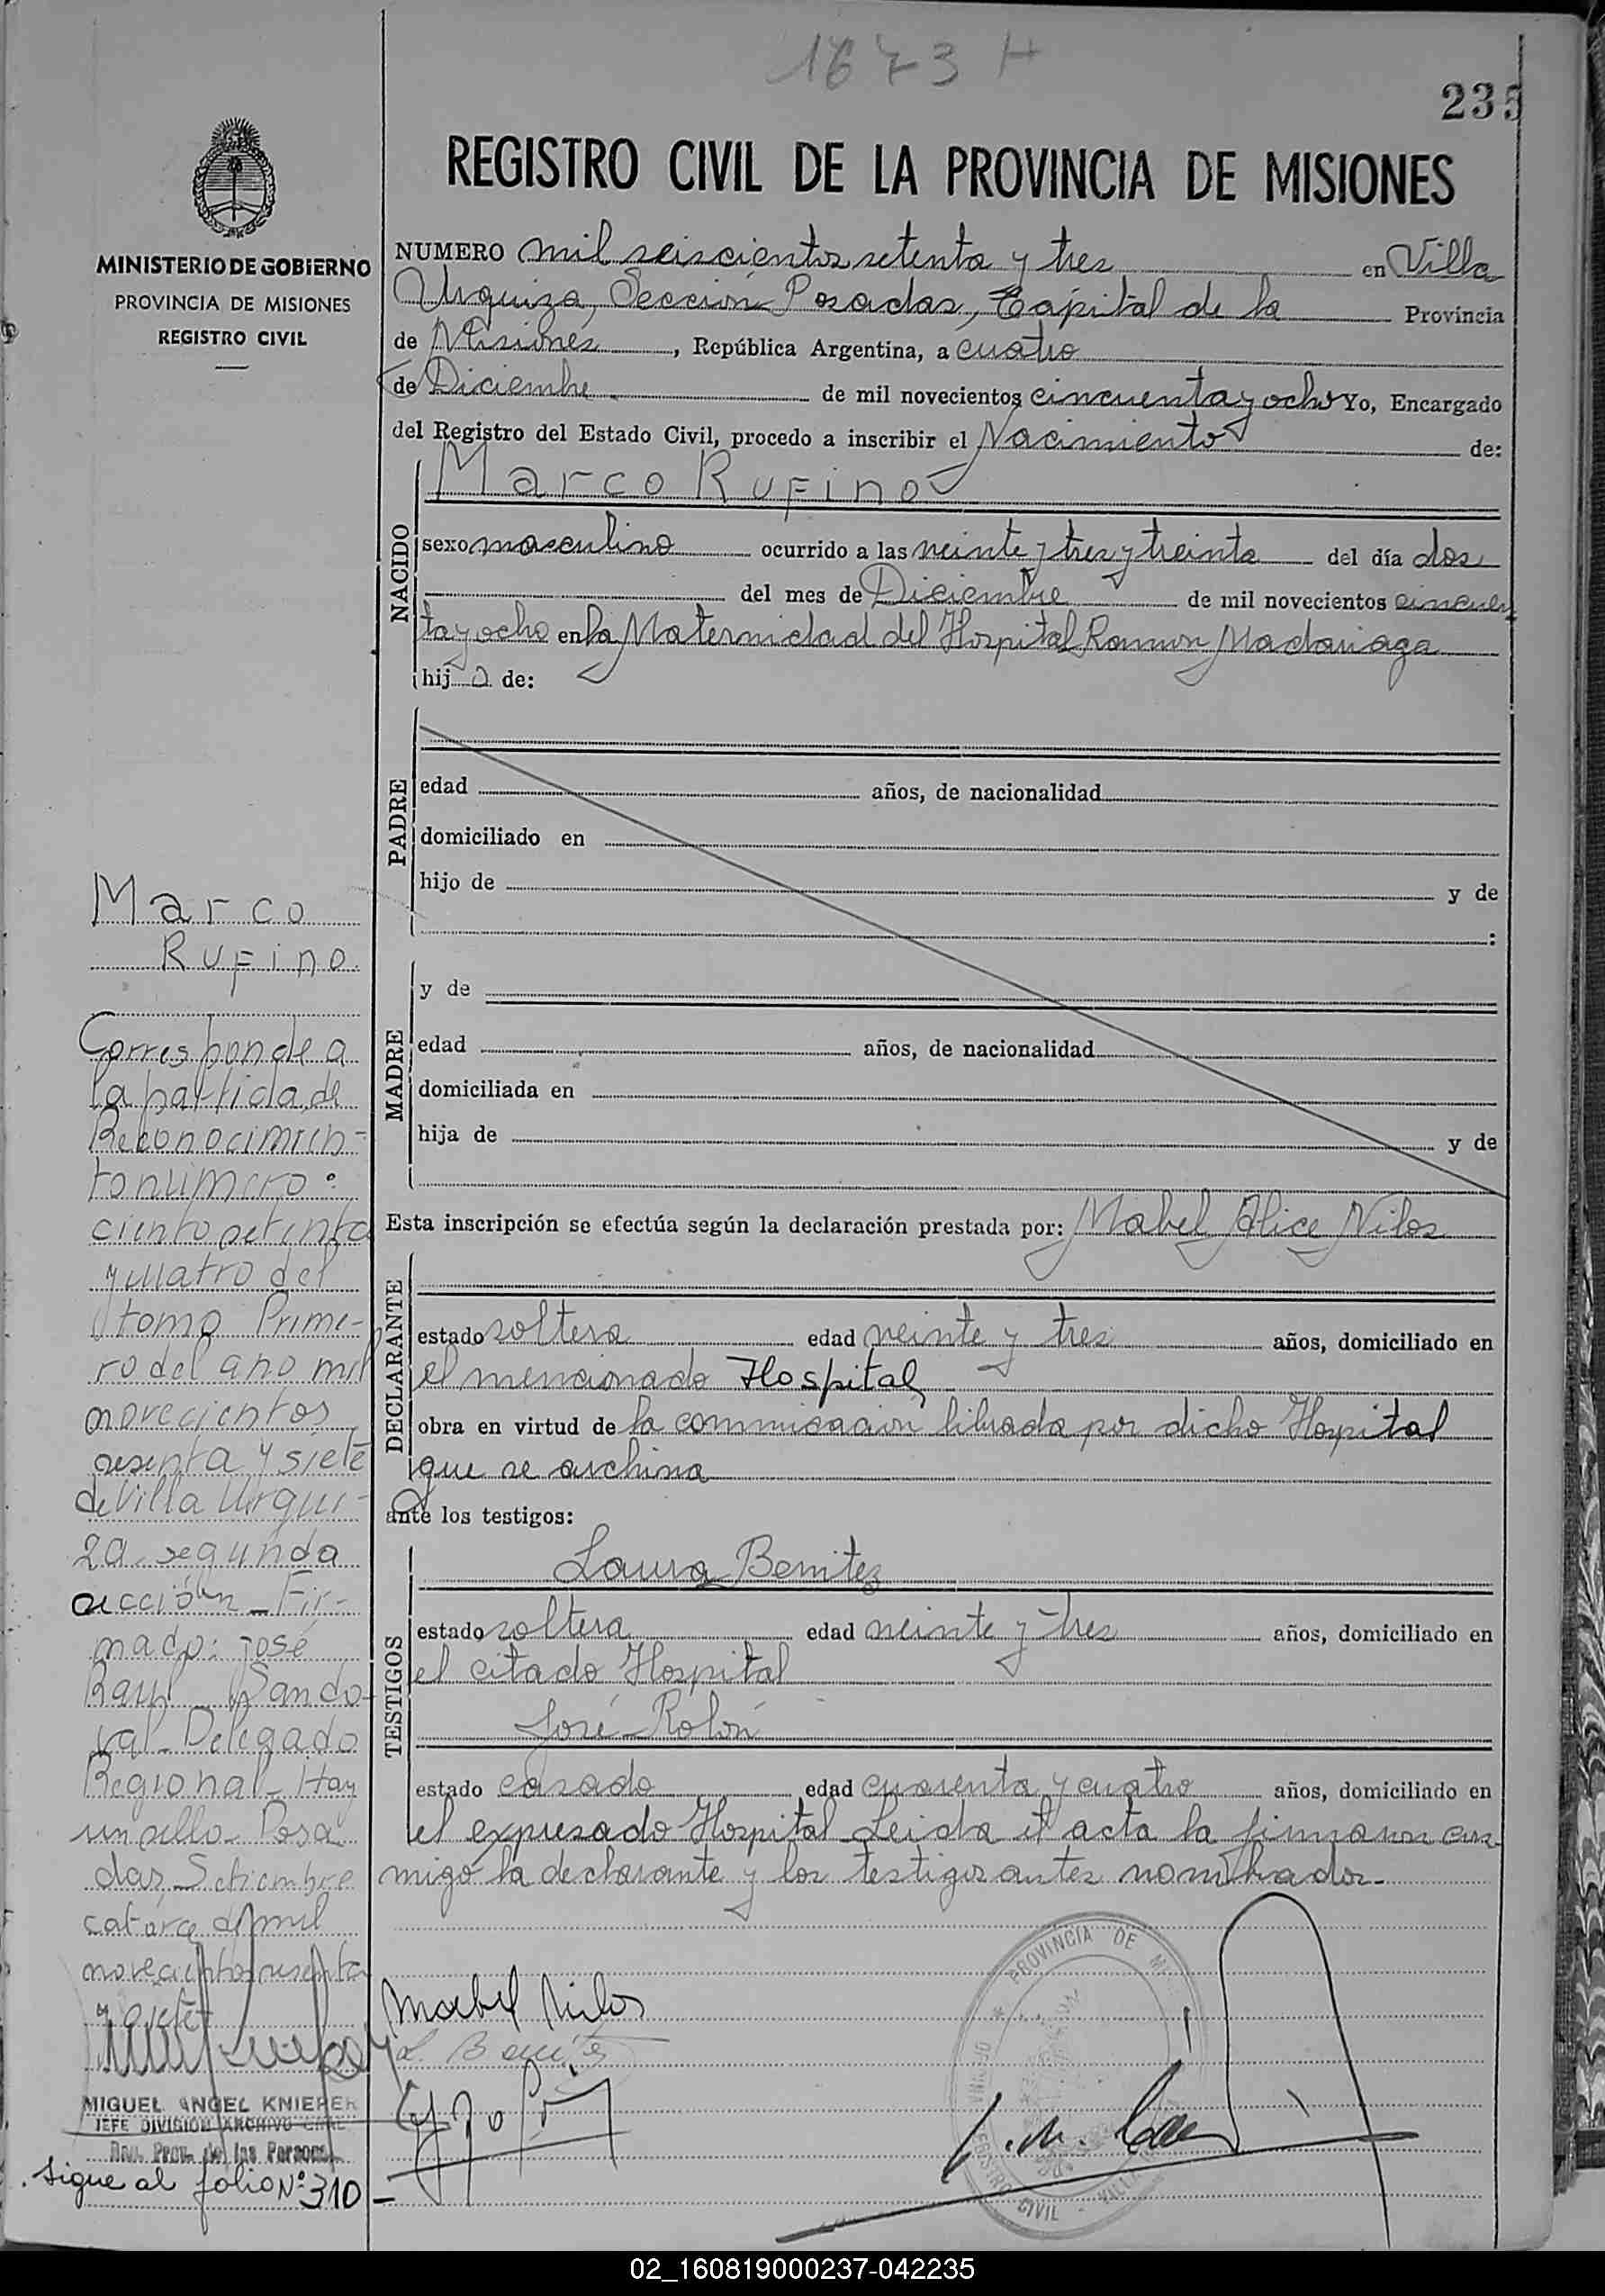 1673 H
235
REGISTRO CIVIL DE LA PROVINCIA DE MISIONES
MINISTERIO DE GOBIERNO
PROVINCIA DE MISIONES
REGISTRO CIVIL
NUMERO mil seiscientos setenta y tres en Villa
Urquiza, Sección Posadas, Capital de la Provincia
de Misiones, República Argentina, a cuatro
de Diciembre de mil novecientos cincuenta y ocho Yo, Encargado
del Registro del Estado Civil, procedo a inscribir el Nacimiento de:
NACIDO
Marco Rufino
sexo masculino ocurrido a las veinte y tres y treinta del día dos
del mes de Diciembre de mil novecientos cincuen
ta y ocho en la Maternidad del Hospital Ramon Madariaga
hijo de:
PADRE
edad años, de nacionalidad
domiciliado en
hijo de y de
:
MADRE
y de
edad años, de nacionalidad
domiciliada en
hija de y de
Esta inscripción se efectúa según la declaración prestada por: Mabel Alice Nilos
DECLARANTE
estado soltera edad veinte y tres años, domiciliado en
el mencionado Hospital
obra en virtud de la comunicación librada por dicho Hospital
que se archiva
ante los testigos:
TESTIGOS
Laura Benitez
estado soltera edad veinte y tres años, domiciliado en
el citado Hospital
José Rolón
estado casado edad cuarenta y cuatro años, domiciliado en
el expresado Hospital Leida el acta la firmaron con
migo la declarante y los testigos antes nombrados-
Mabel Nilos
L. Benitez
PROVINCIA DE
REGISTRO CIVIL
Marco
Rufino
Corresponde a
la partida de
Reconocimien-
to número:
ciento setenta
y cuatro del
tomo Prime-
ro del año mil
novecientos
sesenta y siete
de Villa Urqui-
za segunda
sección - Fir-
mado: José
Raul Sando-
val - Delegado
Regional - Hay
un sello - Posa
das, Setiembre
catorce de mil
novecientos sesenta
y siete-
MIGUEL ANGEL KNIEPER
JEFE DIVISION ARCHIVO GRAL
Dir. Prov. de las Personas
Sigue al folio Nº 310 -
02_160819000237-042235